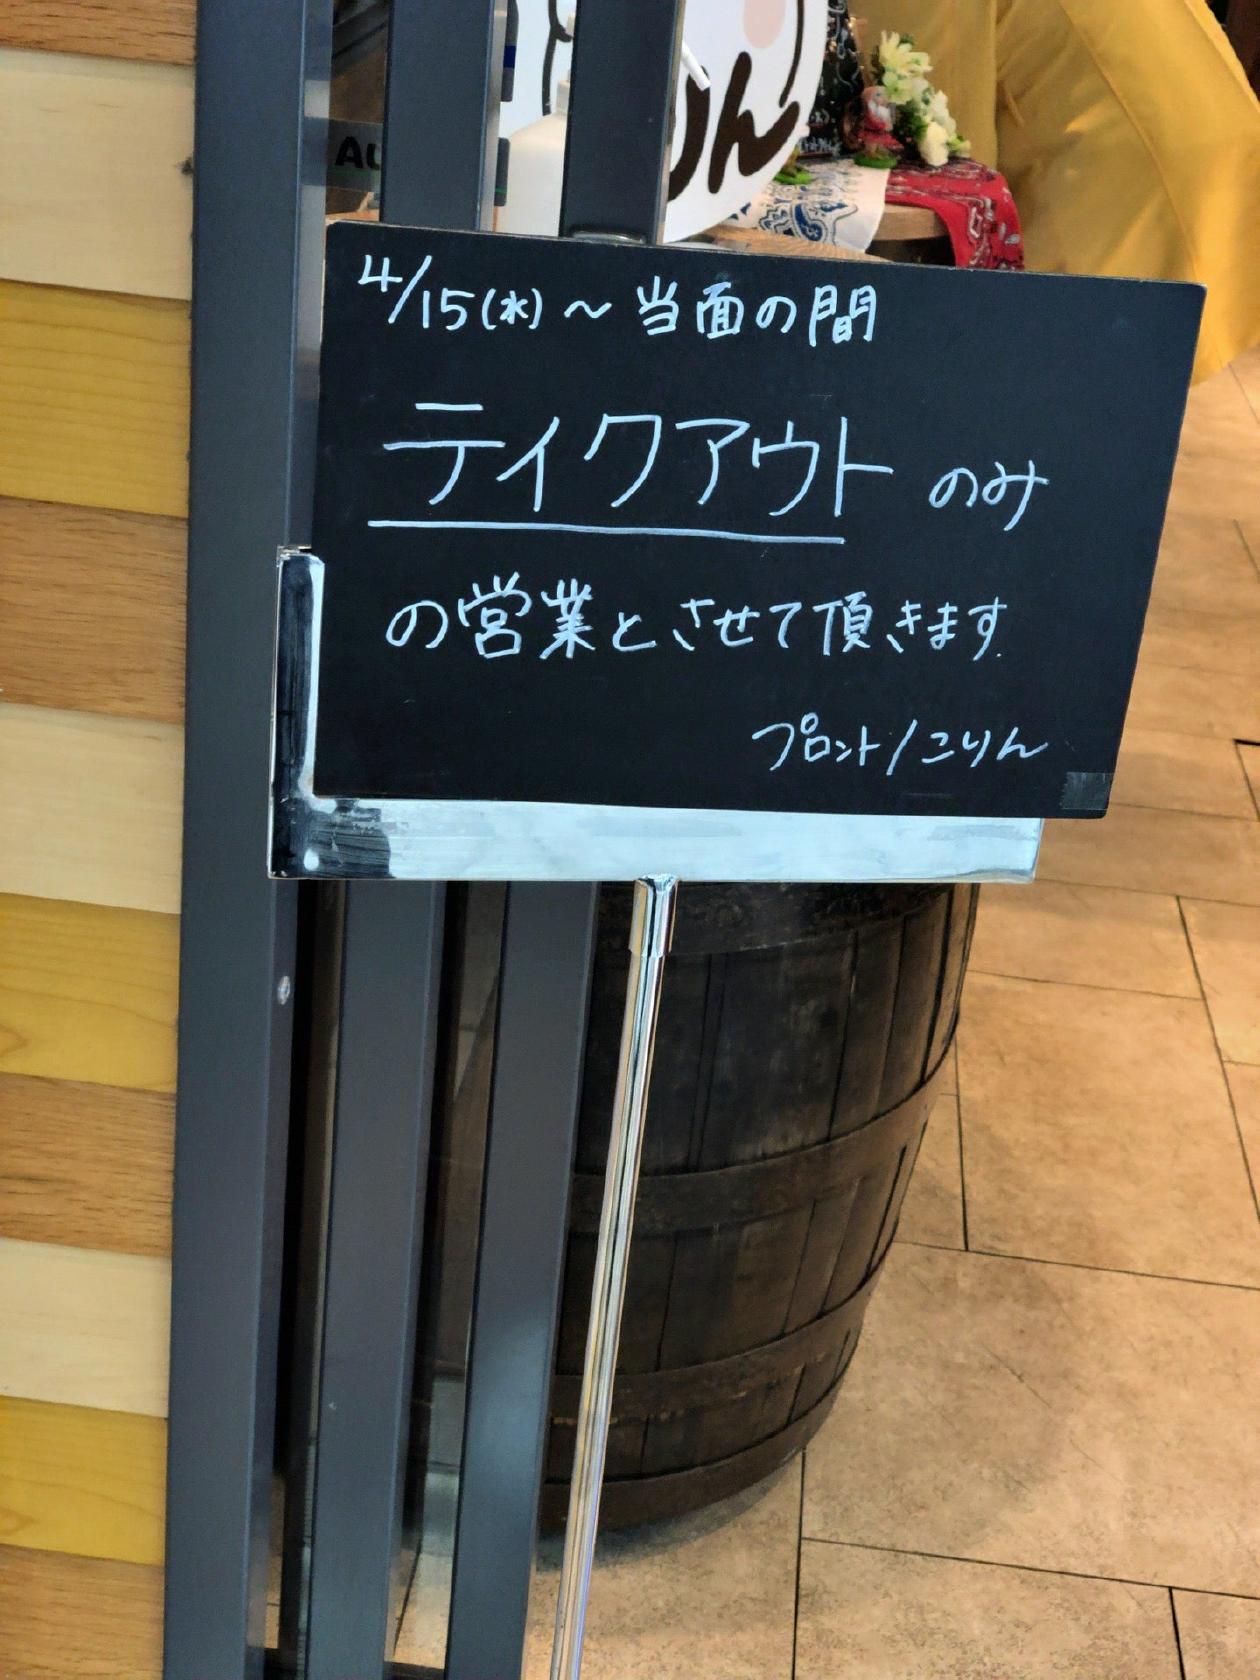 りん
4/15(水)～当面の間
テイクアウトのみ
の営業とさせて頂きます.
プロント/こりん